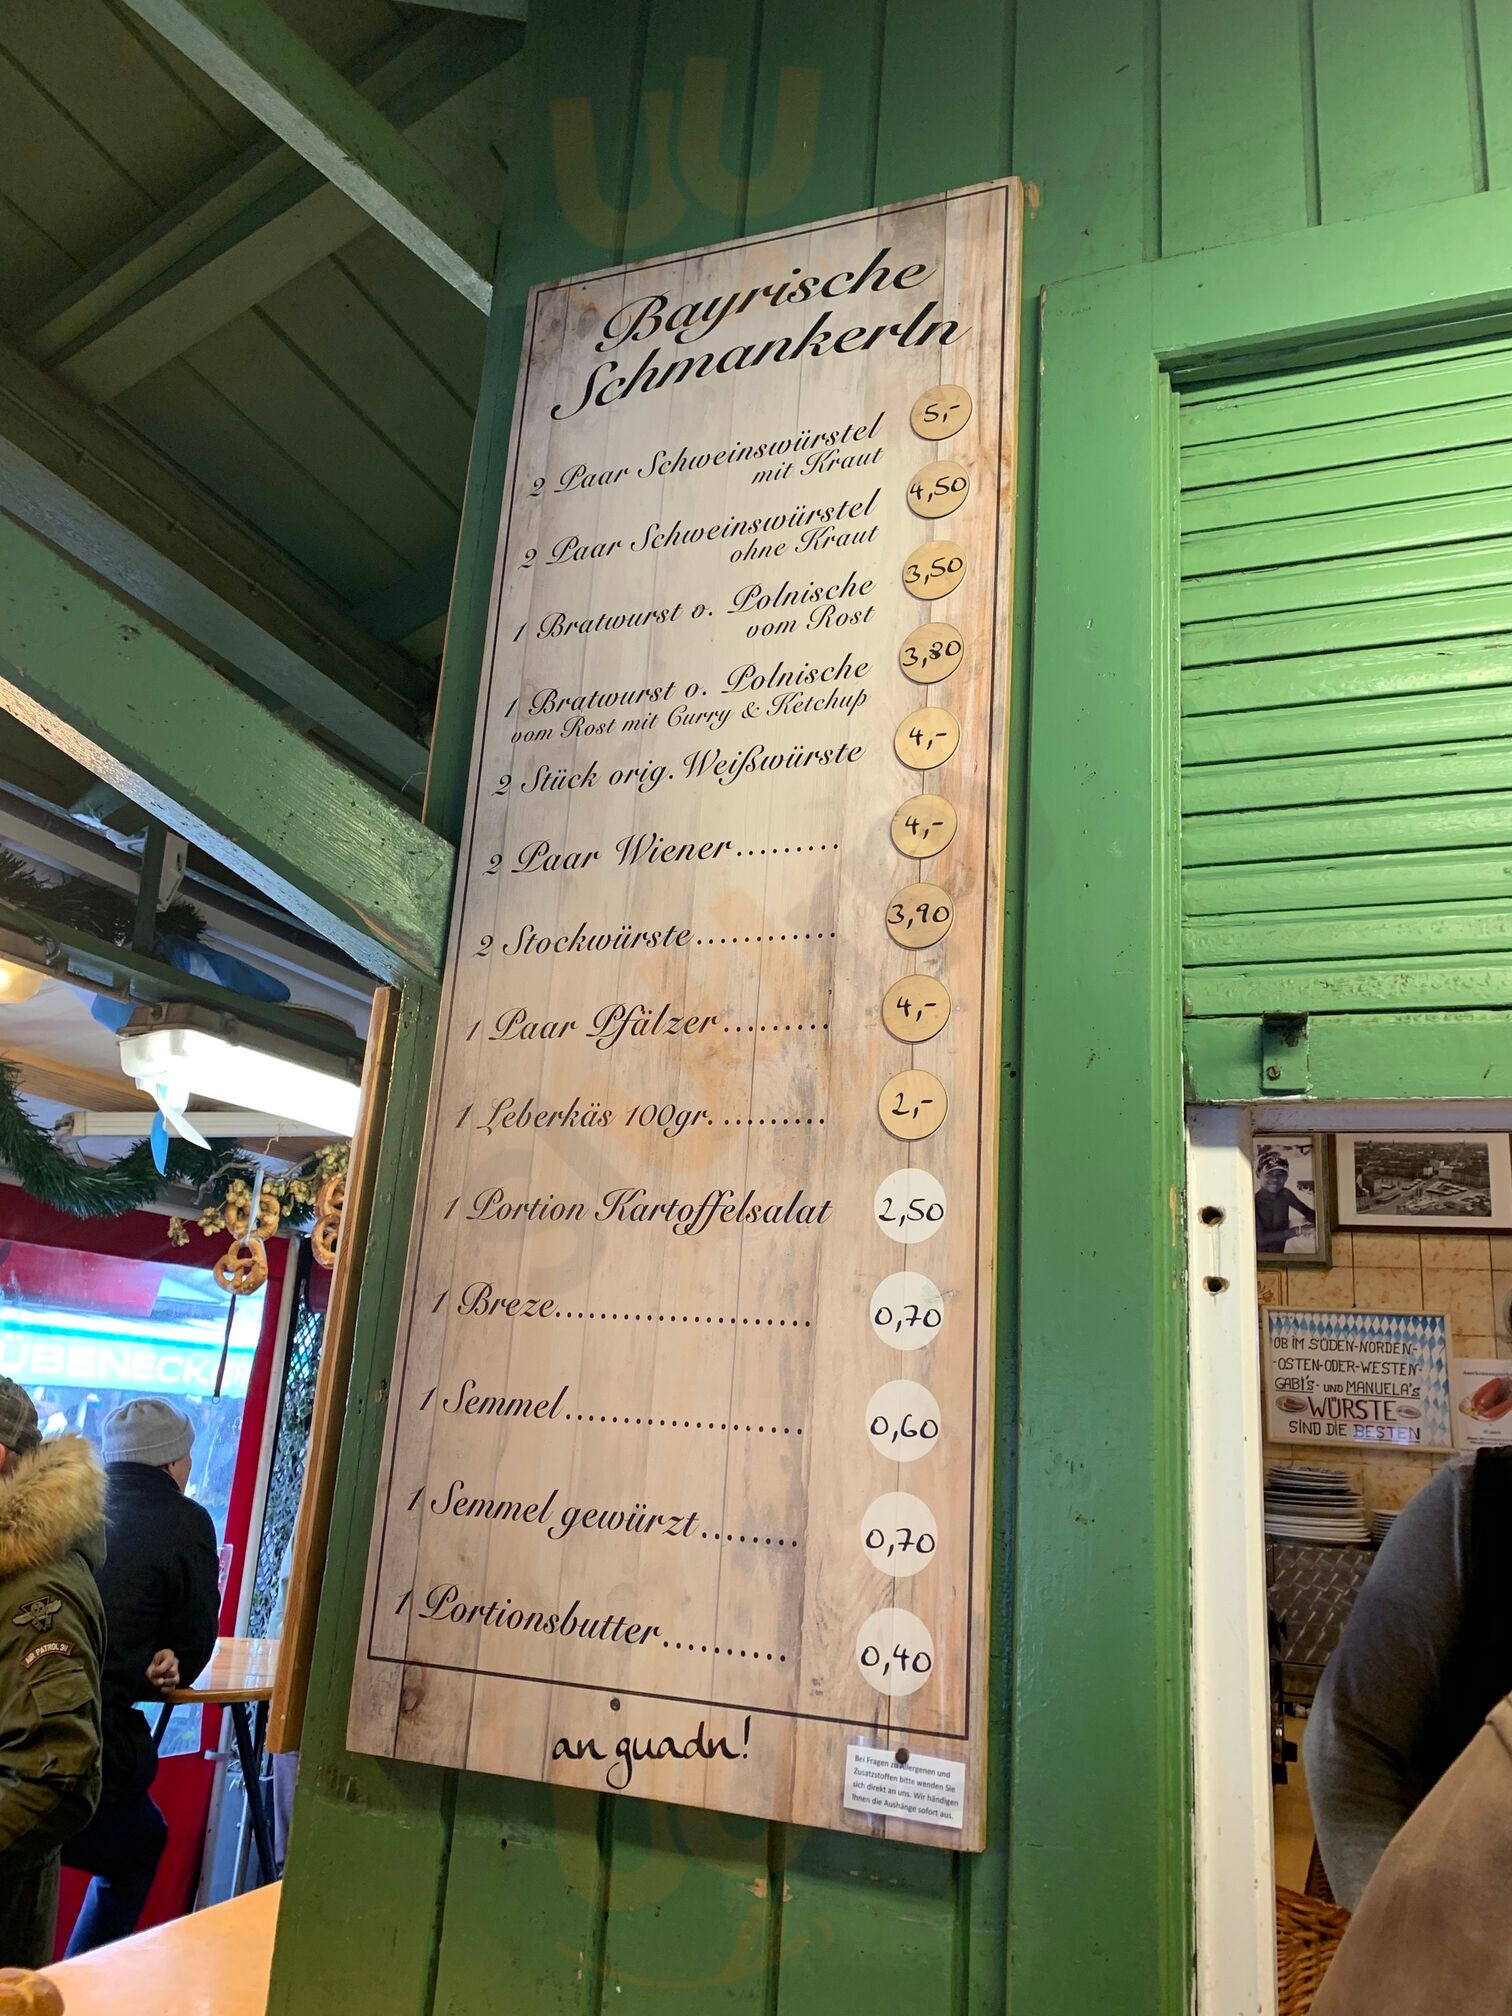 Bayrische
Schmankerln
2 Paar Schweinswürstel 5,-
mit Kraut
2 Paar Schweinswürstel 4,50
ohne Kraut
1 Bratwurst o. Polnische 3,50
vom Rost
1 Bratwurst o. Polnische 3,80
vom Rost mit Curry & Ketchup
2 Stück orig. Weißwürste 4,-
2 Paar Wiener......... 4,-
2 Stockwürste............ 3,90
1 Paar Pfälzer......... 4,-
1 Leberkäs 100gr.......... 2,-
1 Portion Kartoffelsalat 2,50
1 Breze...................... 0,70
1 Semmel.................... 0,60
1 Semmel gewürzt........ 0,70
1 Portionsbutter.......... 0,40
an guadn!
Bei Fragen zu Allergenen und
Zusatzstoffen bitte wenden Sie
sich direkt an uns. Wir händigen
Ihnen die Aushänge sofort aus.
OB IM SÜDEN-NORDEN-
-OSTEN-ODER-WESTEN-
GABI'S- UND MANUELA'S
WÜRSTE
SIND DIE BESTEN
ÜBENECK
AIR PATROL